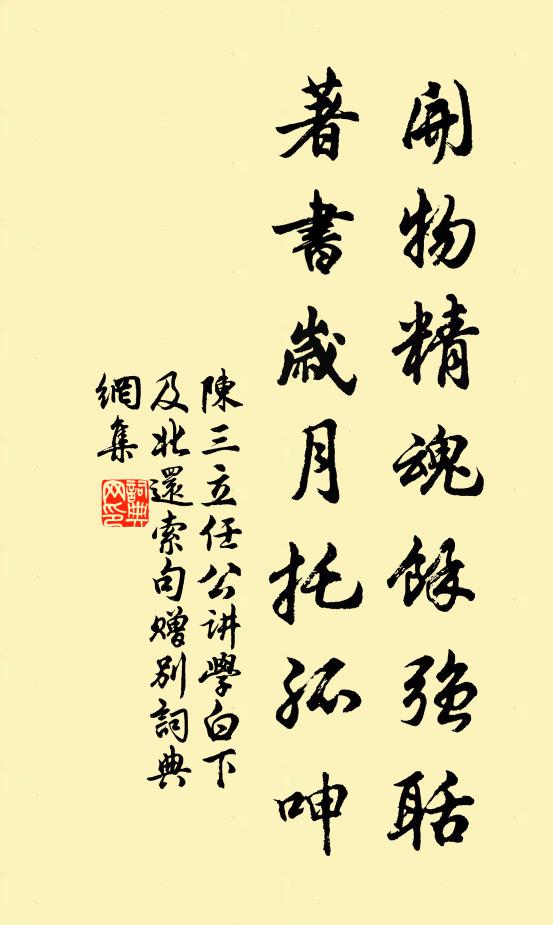 開物精魂餘強聒
著書歲月托孤呻
陳三立任公讲學白下
及北還索句贈別詞典
網集
詞典
网印